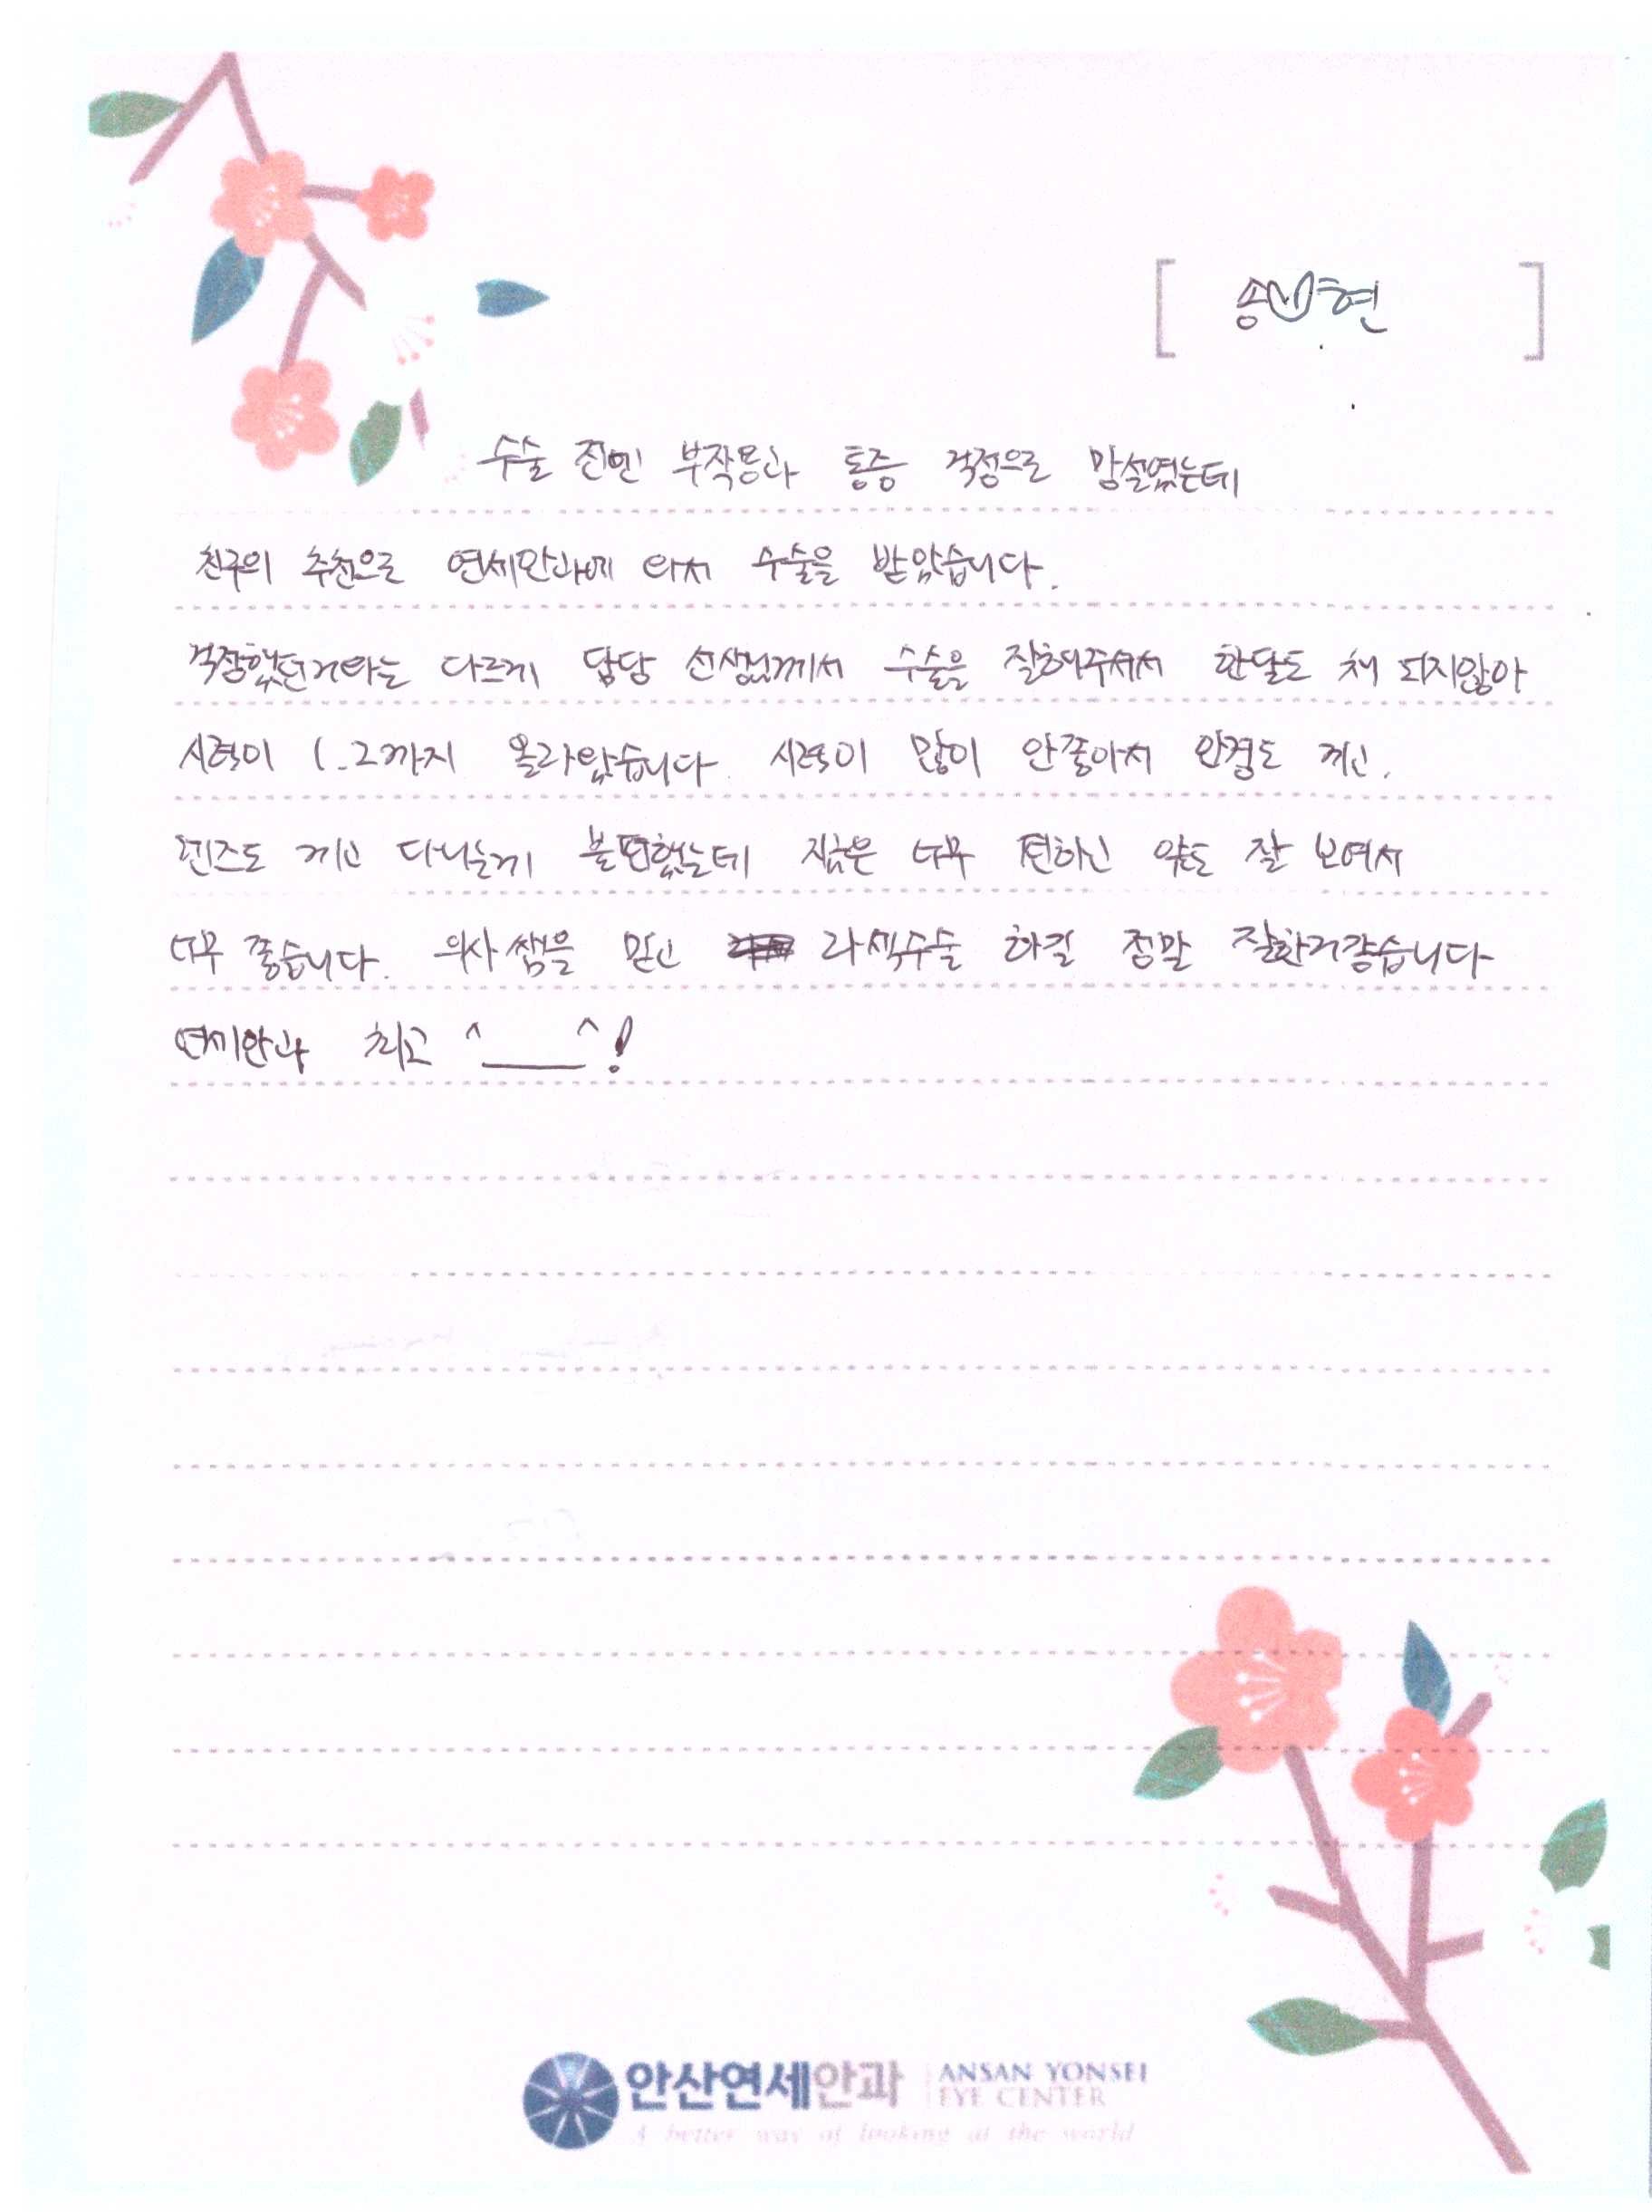 [ 송♡현 ]
수술 전엔 부작용과 통증 걱정으로 망설였는데
친구의 추천으로 연세안과에 와서 수술을 받았습니다.
걱정했던거와는 다르게 담당 선생님께서 수술을 잘해주셔서 한달도 채 되지않아
시력이 1.2까지 올라왔습니다. 시력이 많이 안좋아서 안경도 끼고,
렌즈도 끼고 다니는게 불편했는데 지금은 너무 편하고 앞도 잘 보여서
너무 좋습니다. 의사쌤을 믿고 라섹수술 하길 정말 잘한거같습니다
연세안과 최고 ^___^!
안산연세안과 ANSAN YONSEI
EYE CENTER
A better way of looking at the world